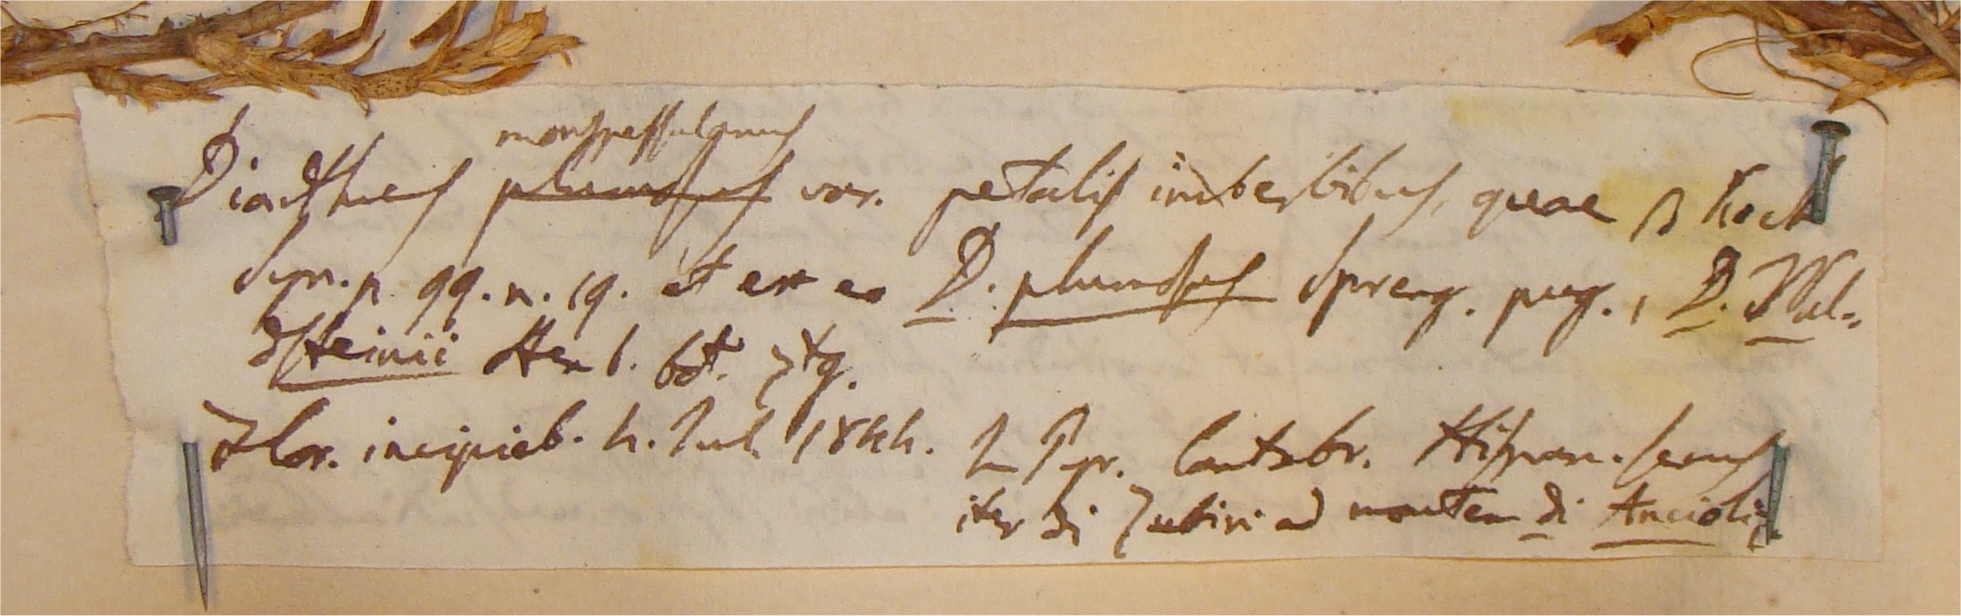 monspessulanus
Dianthus plumosus var. petalis imberbibus, quae β Koch
syn. p. 99. n. 19. et ex eo D. plumosus Spreng. pug., D. Wal-
dsteinii Sternb. bot. Ztg.
Flor. incipieb. h. Jul. 1844. In Pyr. Cantabr. Hispan. secus
iter di Zubiri ad montem di Anciolis